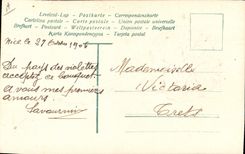 Levelező-Lap - Postkarte - Correspondenzkarte
Cartolina postale - Carte postale - Union postale universelle
Brefkort - Postcard - Weltpostverein - Dopisnice - Briefkaart
Karta Korespondencyjna - Tarjeta postal
Nice le 27 1906
Du pays des violettes
acceptez ce bouquet
et vous mes premiers
amours.
Mademoiselle
Victoria
Trets